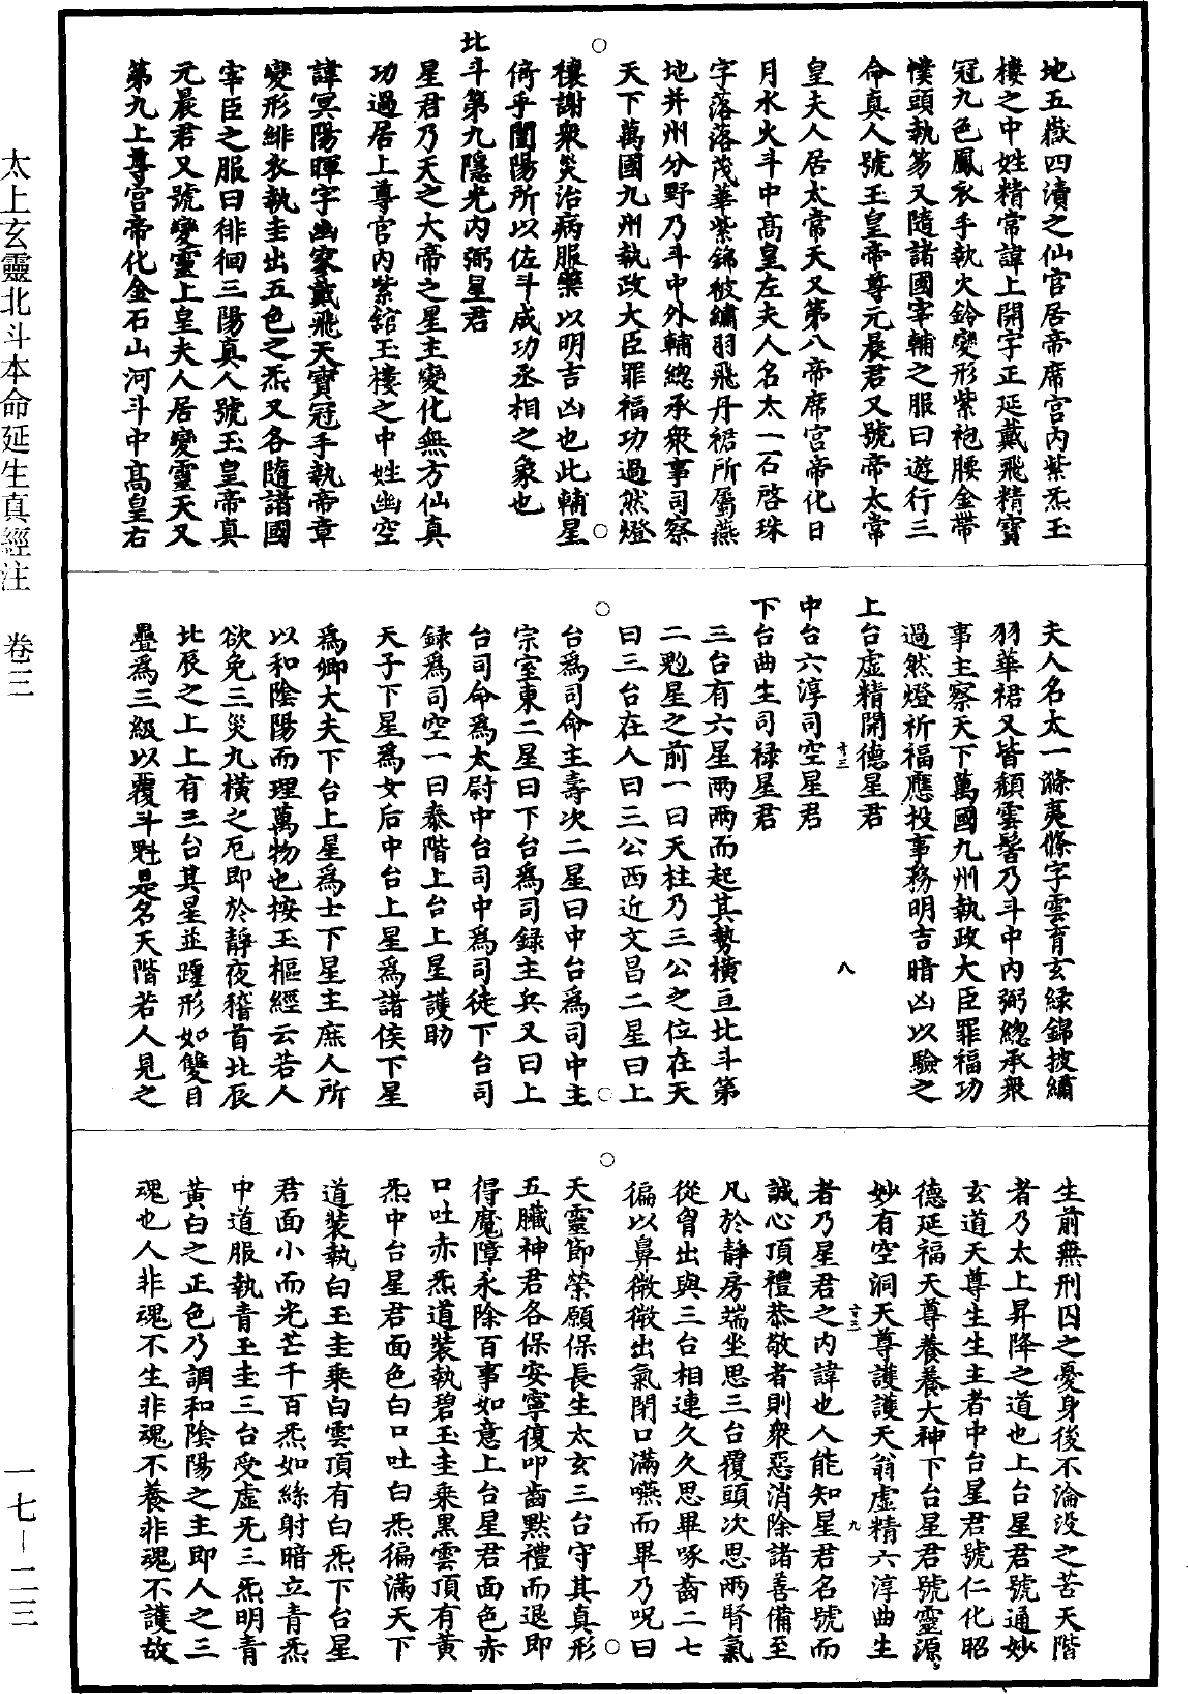 地五嶽四瀆之仙官居帝席宮内紫炁玉
樓之中姓精常諱上開字正延戴飛精寶
冠九色鳳衣手執火鈴變形紫袍腰金帶
幞頭執笏又隨諸國宰輔之服曰遊行三
命真人號玉皇帝尊元晨君又號帝太常
皇夫人居太常天又第八帝席宮帝化日
月水火斗中高皇左夫人名太一石啓珠
字落落茂華紫錦被繡羽飛丹裙所屬燕
地并州分野乃斗中外輔緫承衆事司察
天下萬國九州執政大臣罪福功過然燈
禳謝衆災治病服藥以明吉凶也此輔星
倚乎闓陽所以佐斗成功丞相之象也
北斗第九隱光内弼星君
星君乃天之大帝之星主變化無方仙真
功過居上尊官内紫舘玉樓之中姓幽空
諱冥陽暉字幽寥戴飛天寶冠手執帝章
變形緋衣執圭出五色之炁又各隨諸國
宰臣之服曰徘徊三陽真人號玉皇帝真
元晨君又號變靈上皇夫人居變靈天又
第九上尊宫帝化金石山河斗中高皇右
夫人名太一滌夷條字雲育玄緑錦披繡
羽華裙又皆頹雲髻乃斗中内弼緫承衆
事主察天下萬國九州執政大臣罪福功
過然燈祈福應投事務明吉暗凶以驗之
上台虛精開德星君
中台六淳司空星君
下台曲生司禄星君
三台有六星兩兩而起其勢橫亘北斗第
二魁星之前一曰天柱乃三公之位在天
曰三台在人曰三公西近文昌二星曰上
台爲司命主壽次二星曰中台爲司中主
宗室東二星曰下台爲司録主兵又曰上
台司命爲太尉中台司中爲司徒下台司
録爲司空一曰泰階上台上星護助
天子下星爲女后中台上星爲諸侯下星
爲卿大夫下台上星爲士下星主庶人所
以和陰陽而理萬物也按玉樞經云若人
欲免三災九橫之厄即於靜夜稽首北辰
北辰之上上有三台其星並躔形如雙目
疊爲三級以覆斗魁是名天階若人見之
生前無刑囚之憂身後不淪没之苦天階
者乃太上昇降之道也上台星君號通妙
玄道天尊生生主者中台星君號仁化昭
德延福天尊養養大神下台星君號靈源
妙有空洞天尊護護天翁虛精六淳曲生
者乃星君之内諱也人能知星君名號而
誠心頂禮恭敬者則衆惡消除諸善備至
凡於静房端坐思三台覆頭次思兩腎氣
從膂出與三台相連久久思畢啄齒二七
徧以鼻微微出氣閉口滿嚥而畢乃呪曰
天靈節榮願保長生太玄三台守其真形
五臟神君各保安寧復叩齒默禮而退即
得魔障永除百事如意上台星君面色赤
口吐赤炁道裝執碧玉圭乘黒雲頂有黃
炁中台星君面色白口吐白炁徧滿天下
道裝執白玉圭乘白雲頂有白炁下台星
君面小而光芒千百炁如絲射暗立青炁
中道服執青玉圭三台受虛无三炁明青
黃白之正色乃調和陰陽之主即人之三
魂也人非魂不生非魂不養非魂不護故
十三
八
十三
九
太上玄靈北斗本命延生真經注　卷三
一七－二三